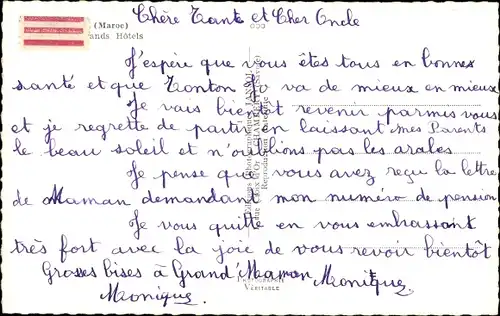 Chère Tante et Cher Oncle
(Maroc)
ands Hôtels
J'espère que vous êtes tous en bonnes
santé et que Tonton Jo va de mieux en mieux
Je vais bientôt revenir parmis vous
et je regrette de partir en laissant mes Parents
le beau soleil et n'oublions pas les arabes
Je pense que vous avez reçu la lettre
de Maman demandant mon numéro de pension
Je vous quitte en vous embrassant
très fort avec la joie de vous revoir bientôt
Grosses bises à Grand'Maman Monique
Monique.
PHOTOGRAPHIE
VÉRITABLE